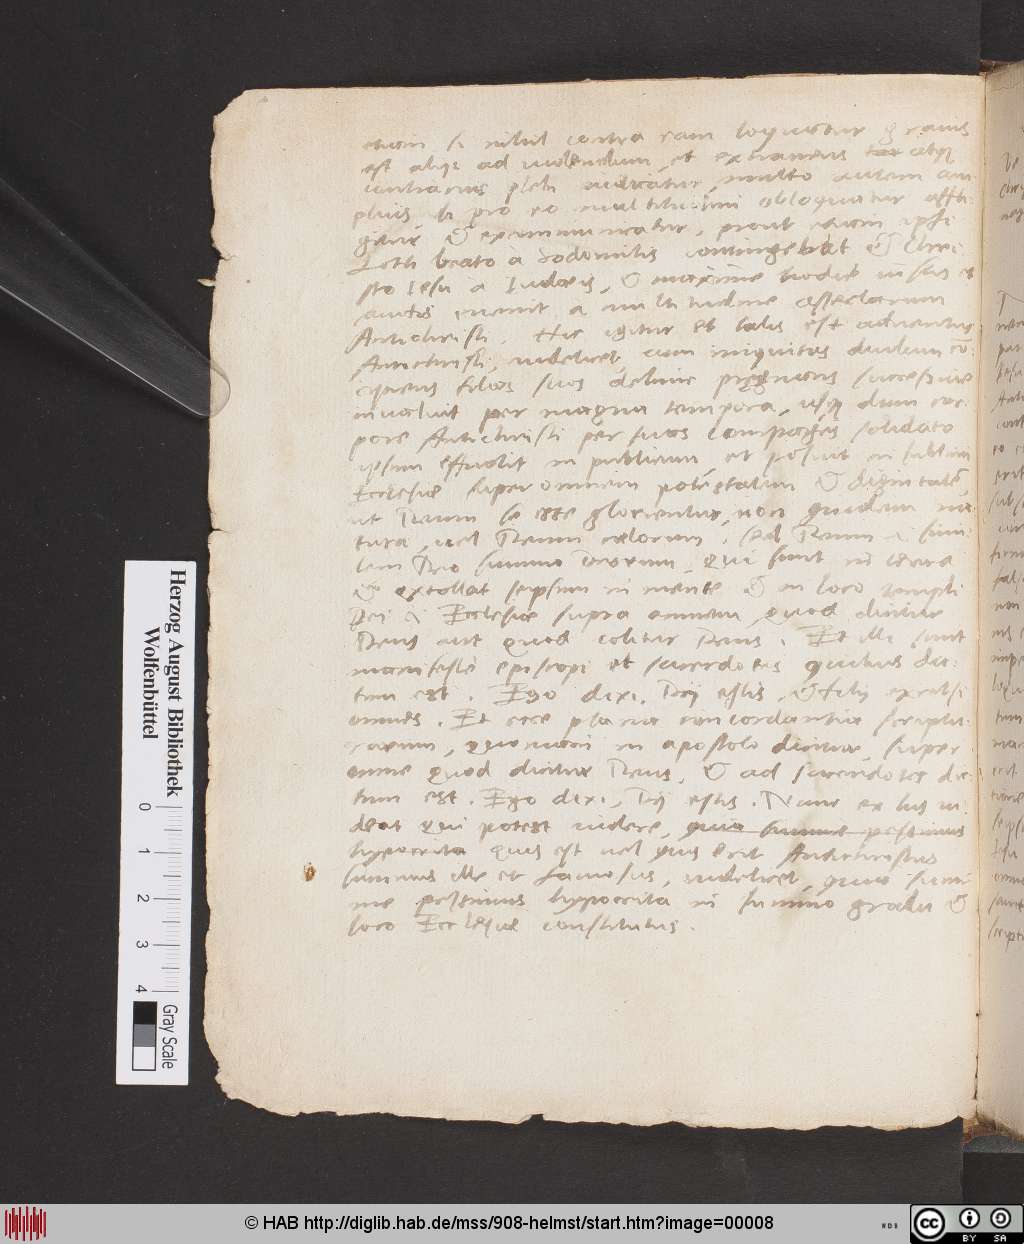 etiam si nihil contra eam loquatur grauis
est aliis ad uidendum, et extraneus atque
contrarius plebi iudicatur, multo autem am
plius si pro eo multitudini obloquatur affli
gitur & excommunicatur, prout etiam ipsi
Loth beato à Sodomitis contingebat & Chri
sto Iesu a Iudaeis, & maxime hodie in suis
euenit a multitudine asseclarum
Antichristi. Hic igitur et talis est aduentus
Antichristi, uidelicet, cum iniquitas dudum con
cipiens filios suos dehinc pręgnans successiue
inualuit per magna tempora, usque dum cor
pore Antichristi per suas compages solidato
ipsum effudit in publicum et posuit in sublimi
Ecclesiae super omnem potestatem & dignitatem,
ut Deum se esse glorientur, non quidem na
tura, uel Deum caelorum, sed Deum i. simi
lem Deo summo Deorum, qui sunt in terra
& extollat seipsum in mente & in loco templi
Dei i. Ecclesiae supra omnem, quod dicitur
Deus aut quod colitur Deus. Et illi sunt
manifestè episcopi et sacerdotes quibus dic:
tum est. Ego dixi, Dij estis, & filij excelsi
omnes. Et ecce plana concordantia scriptu
rarum, quoniam in apostolo dicitur, super
omne quod dicitur Deus, & ad sacerdotes dic
tum est. Ego dixi, Dij estis. Nunc ex his ui
deat qui potest uidere, quia summe pessimus
hypocrita quis est uel quis erit Antichristus
summus ille et famosus, uidelicet, quia sum
me pessimus hypocrita in summo gradu &
loco Ecclesiae constitutus.
Herzog August Bibliothek
Wolfenbüttel
0 1 2 3 4
Gray Scale
© HAB http://diglib.hab.de/mss/908-helmst/start.htm?image=00008
WDB
cc BY SA